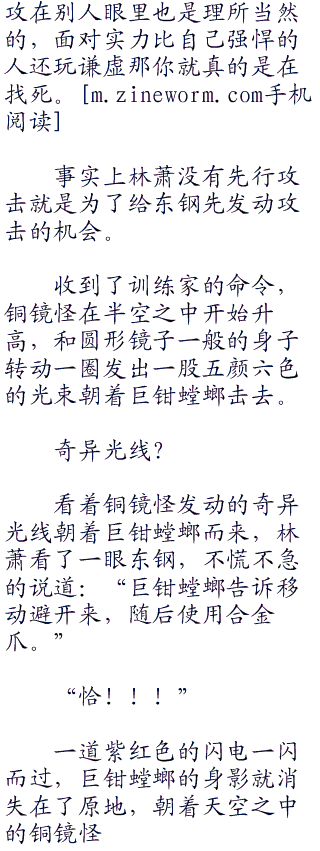 攻在别人眼里也是理所当然
的，面对实力比自己强悍的
人还玩谦虚那你就真的是在
找死。[m.zineworm.com手机
阅读]
事实上林萧没有先行攻
击就是为了给东钢先发动攻
击的机会。
收到了训练家的命令，
铜镜怪在半空之中开始升
高，和圆形镜子一般的身子
转动一圈发出一股五颜六色
的光束朝着巨钳螳螂击去。
奇异光线？
看着铜镜怪发动的奇异
光线朝着巨钳螳螂而来，林
萧看了一眼东钢，不慌不急
的说道：“巨钳螳螂告诉移
动避开来，随后使用合金
爪。”
“恰！！！”
一道紫红色的闪电一闪
而过，巨钳螳螂的身影就消
失在了原地，朝着天空之中
的铜镜怪